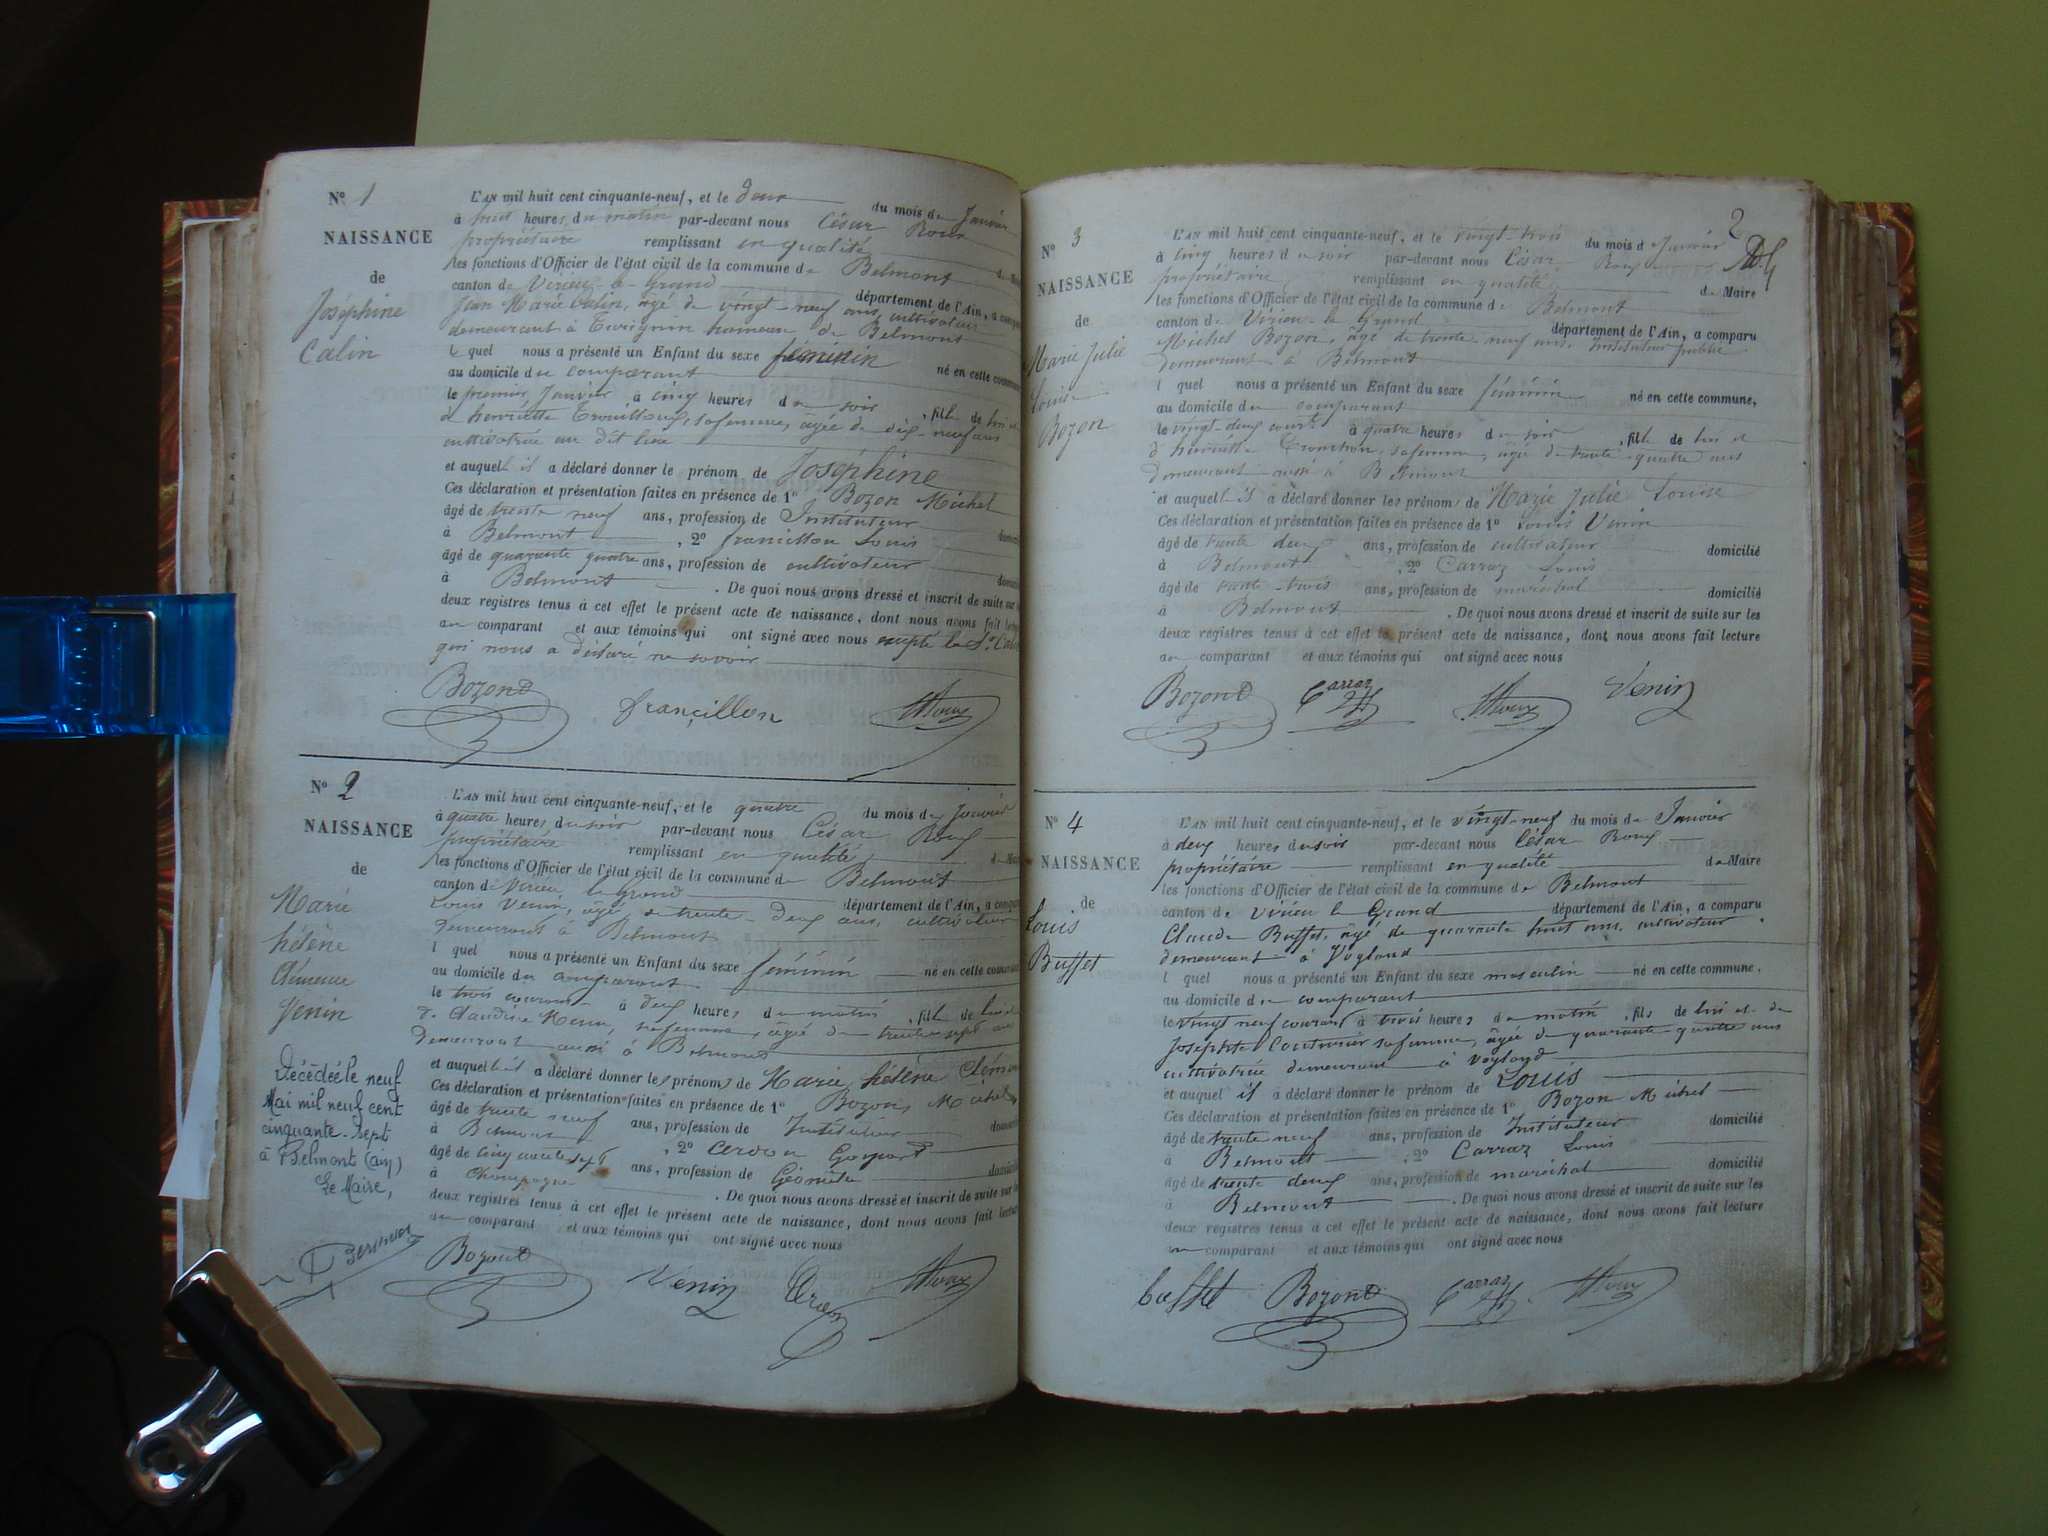 N° 1
NAISSANCE
de
Joséphine
Calin
L'AN mil huit cent cinquante-neuf, et le deux du mois de Janvier
à huit heures du matin par-devant nous César Roux
propriétaire remplissant en qualité
les fonctions d'Officier de l'état civil de la commune de Belmont
canton de Virieu-le-Grand département de l'Ain, a comparu
Jean Marie Calin, âgé de vingt-neuf ans, cultivateur
demeurant à hameau de Belmont
lequel nous a présenté un Enfant du sexe féminin
au domicile du comparant né en cette commune
le premier Janvier à cinq heures du soir, fille de lui et
d'henriette sa femme, âgée de dix-neuf ans
cultivatrice au dit lieu
et auquel il a déclaré donner le prénom de Joséphine
Ces déclaration et présentation faites en présence de 1° Bozon Michel
âgé de trente neuf ans, profession de Instituteur
à Belmont, 2° francillon Louis
âgé de quarante quatre ans, profession de cultivateur
à Belmont. De quoi nous avons dressé et inscrit de suite sur
deux registres tenus à cet effet le présent acte de naissance, dont nous avons fait lecture
au comparant et aux témoins qui ont signé avec nous excepté le Sr. Calin
qui nous a déclaré ne savoir
Bozond françillon Roux
N° 2
NAISSANCE
de
Marie
hélène
Clémence
Venin
Décédée le neuf
Mai mil neuf cent
cinquante-sept
à Belmont (ain)
Le Maire,
L'AN mil huit cent cinquante-neuf, et le quatre du mois de Janvier
à quatre heures du soir par-devant nous César Roux
propriétaire remplissant en qualité
les fonctions d'Officier de l'état civil de la commune de Belmont
canton de Virieu le Grand département de l'Ain, a comparu
Louis Venin, âgé de trente-deux ans, cultivateur
demeurant à Belmont
lequel nous a présenté un Enfant du sexe féminin né en cette commune
au domicile du comparant
le trois courant à deux heures du matin, fille de lui et
de Claudine sa femme, âgée de trente sept ans
demeurant aussi à Belmont
et auquel il a déclaré donner les prénoms de Marie hélène Clémence
Ces déclaration et présentation faites en présence de 1° Bozon Michel
âgé de trente neuf ans, profession de Instituteur
à Belmont, 2°
âgé de cinquante sept ans, profession de Géomètre
à Champagne. De quoi nous avons dressé et inscrit de suite sur
deux registres tenus à cet effet le présent acte de naissance, dont nous avons fait lecture
au comparant et aux témoins qui ont signé avec nous
Bozond Venin Roux
2
N° 3
NAISSANCE
de
Marie Julie
Louise
Bozon
L'AN mil huit cent cinquante-neuf, et le vingt-trois du mois de Janvier
à cinq heures du soir par-devant nous César Roux
propriétaire remplissant en qualité de Maire
les fonctions d'Officier de l'état civil de la commune de Belmont
canton de Virieu-le Grand département de l'Ain, a comparu
Michel Bozon, âgé de trente-neuf ans, Instituteur public
demeurant à Belmont
lequel nous a présenté un Enfant du sexe féminin né en cette commune,
au domicile du comparant
le vingt-deux court. à quatre heures du soir, fille de lui et
d'henriette Tronchon, sa femme, âgée de trente-quatre ans
demeurant aussi à Belmont
et auquel il a déclaré donner les prénoms de Marie Julie Louise
Ces déclaration et présentation faites en présence de 1° Louis Venin
âgé de trente deux ans, profession de cultivateur domicilié
à Belmont, 2° Carraz Louis
âgé de trente-trois ans, profession de maréchal domicilié
à Belmont. De quoi nous avons dressé et inscrit de suite sur les
deux registres tenus à cet effet le présent acte de naissance, dont nous avons fait lecture
au comparant et aux témoins qui ont signé avec nous
Bozond Carraz Roux Venin
N° 4
NAISSANCE
de
Louis
Buffet
L'AN mil huit cent cinquante-neuf, et le vingt-neuf du mois de Janvier
à deux heures du soir par-devant nous César Roux
propriétaire remplissant en qualité de Maire
les fonctions d'Officier de l'état civil de la commune de Belmont
canton de Virieu le Grand département de l'Ain, a comparu
Claude Buffet, âgé de quarante huit ans, cultivateur
demeurant à Vogland
lequel nous a présenté un Enfant du sexe masculin né en cette commune,
au domicile du comparant
le vingt neuf courant à trois heures du matin, fils de lui et de
Josephte Couturier sa femme, âgée de quarante-quatre ans
cultivatrice demeurant à Vogland
et auquel il a déclaré donner le prénom de Louis
Ces déclaration et présentation faites en présence de 1° Bozon Michel
âgé de trente neuf ans, profession de Instituteur domicilié
à Belmont, 2° Carraz Louis
âgé de trente deux ans, profession de maréchal domicilié
à Belmont. De quoi nous avons dressé et inscrit de suite sur les
deux registres tenus à cet effet le présent acte de naissance, dont nous avons fait lecture
au comparant et aux témoins qui ont signé avec nous
Bozond Carraz Roux